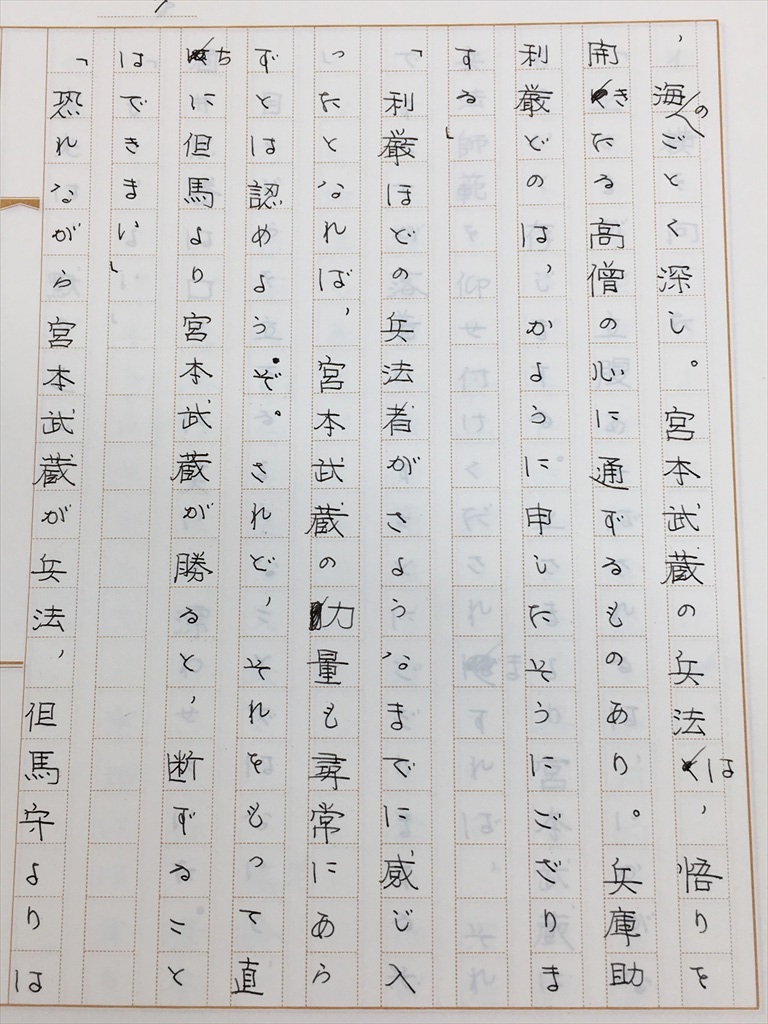 、海のごとく深し。宮本武蔵の兵法は、悟りを
開きたる高僧の心に通ずるものあり。兵庫助
利厳どのは、かように申したそうにござりま
する」
「利厳ほどの兵法者がさようなまでに感じ入
ったとなれば、宮本武蔵の力量も尋常にあら
ずとは認めようぞ。されど、それをもって直
ちに但馬より宮本武蔵が勝ると、断ずること
はできまい」
「恐れながら宮本武蔵が兵法、但馬守よりは